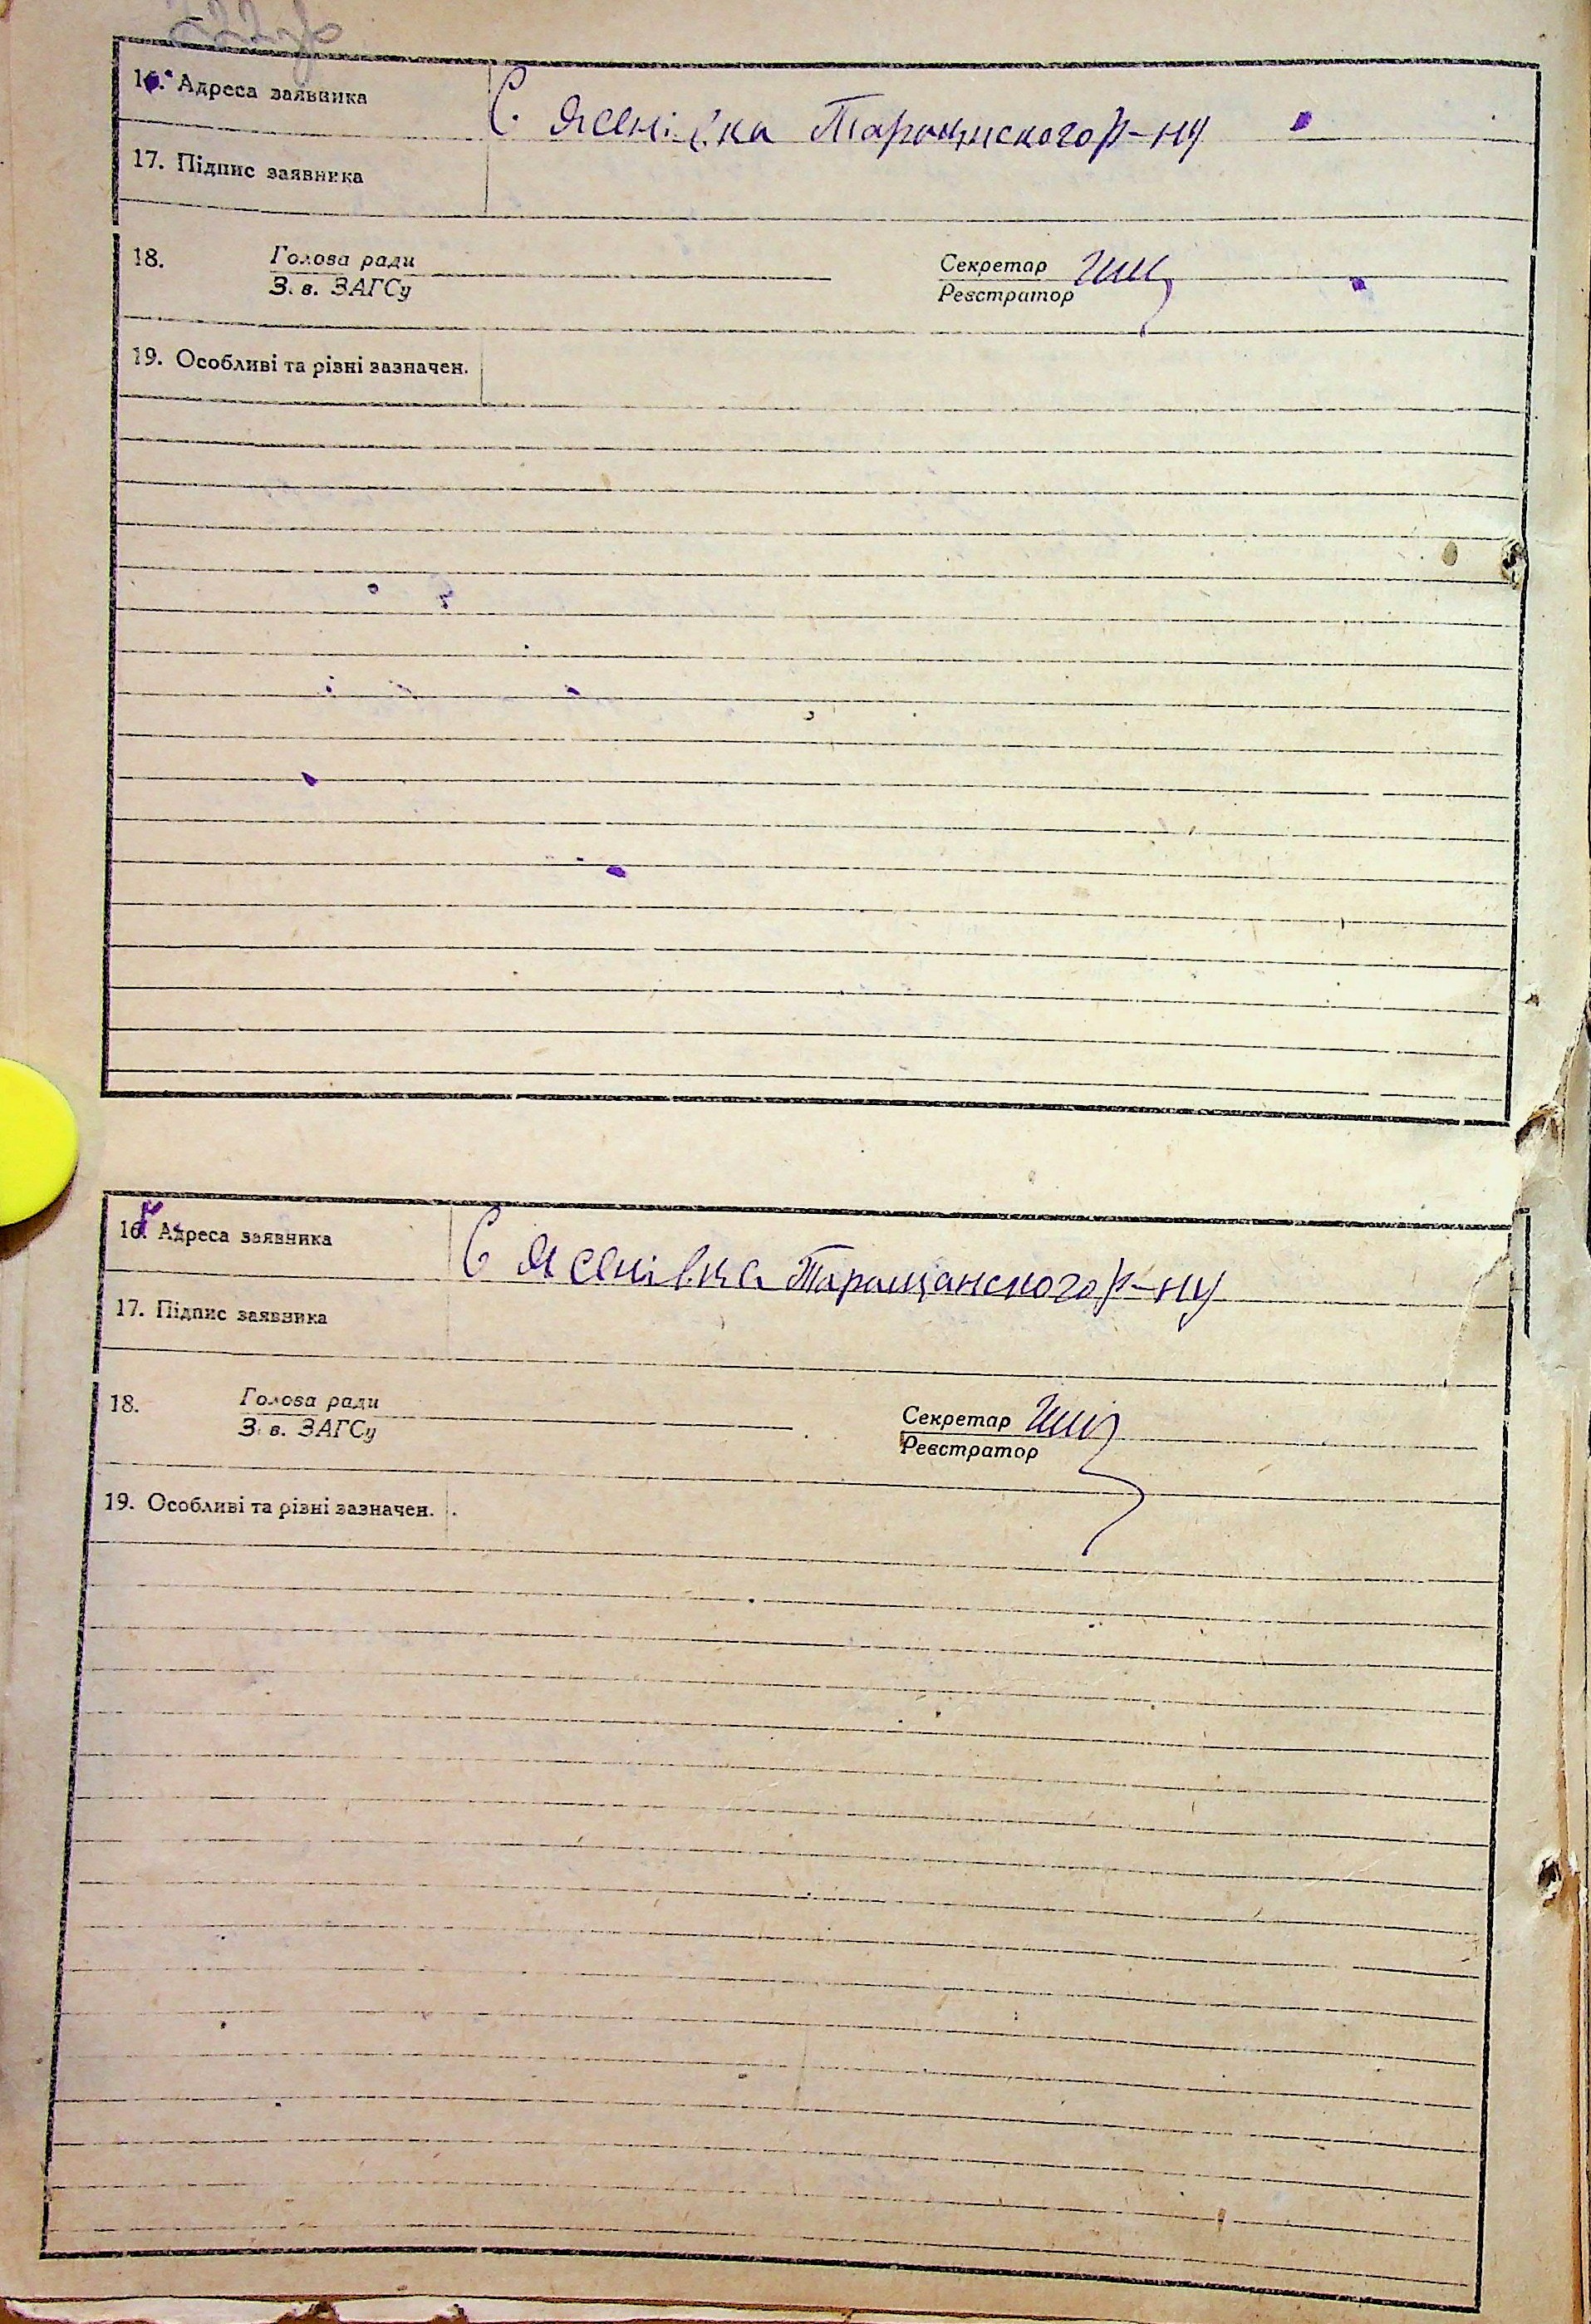 16. Адреса заявника С. Ясенівка Таращнскогор-ну
17. Підпис заявника
18. Голова ради Секретар
З. в. ЗАГСу Реєстратор
19. Особливі та різні зазначен.
16. Адреса заявника С Ясенівка Таращанскогор-ну
17. Підпис заявника
18. Голова ради Секретар
З. в. ЗАГСу Реєстратор
19. Особливі та різні зазначен.